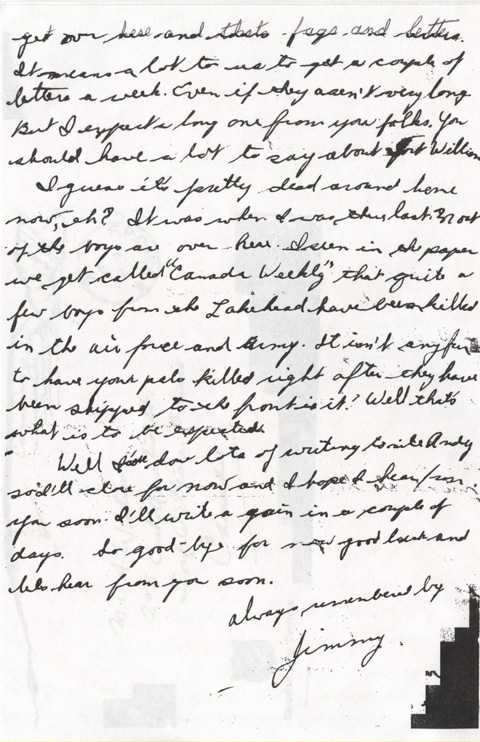 get over here and thats fags and letters.
It means a lot to us to get a couple of
letters a week. Even if they aren't very long
But I expect a long one from you folks. You
should have a lot to say about Fort William
I guess it's pretty dead around home
now, eh? It was when I was thru last. Most
of the boys are over here. I seen in the paper
we get called "Canada Weekly" that quite a
few boys from the Lakehead have been killed
in the air force and army. It isn't any fun
to have your pals killed right after they have
been shipped to the front is it? Well that's
what is to be expected.
Well I've done lots of writing tonite Andy
so I'll close for now and I hope I hear from
you soon. I'll write again in a couple of
days. So good-bye for now good luck and
lets hear from you soon.
always remembered by
Jimmy.